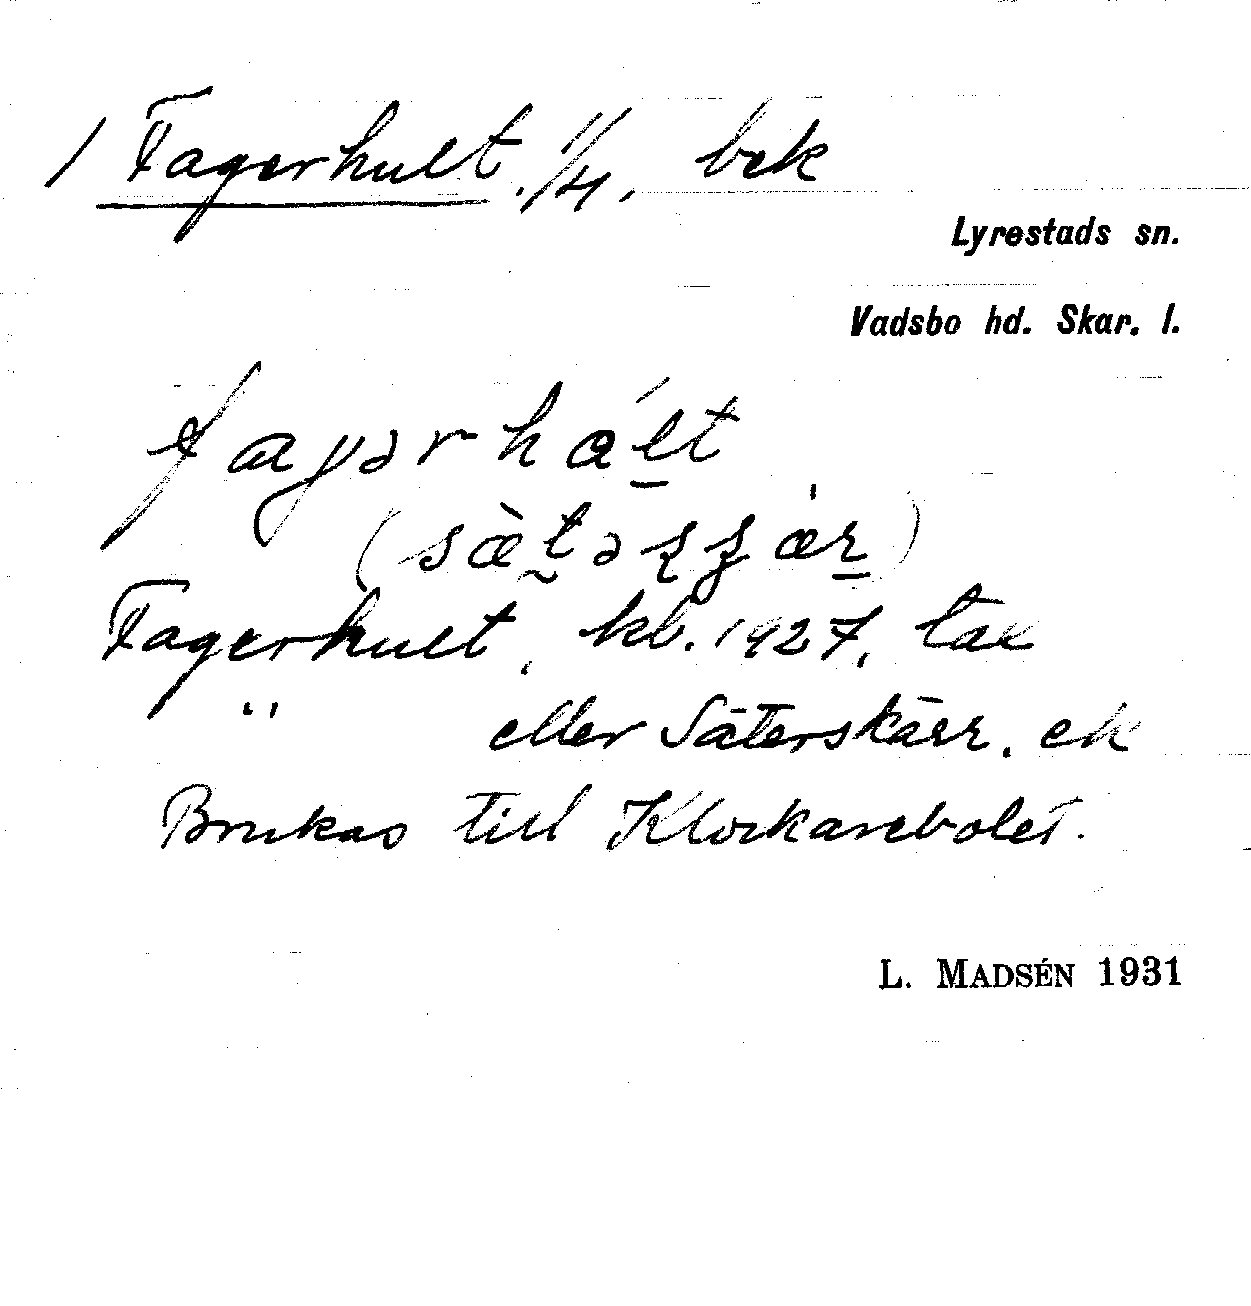 1 Fagerhult, 1/4, bek
Lyrestads sn.
Vadsbo hd. Skar. l.
Fagerhult, kb. 1927,
" eller Säterskärr, ek
Brukas till Klockarebolet.
L. MADSÉN 1931